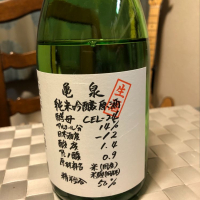 亀泉
生
純米吟醸原酒
酵母 CEL-24
アルコール分 14%
日本酒度 -12
酸度 1.4
アミノ酸 0.9
原材料 米(国産)
米麹(国産米)
精米歩合 50%